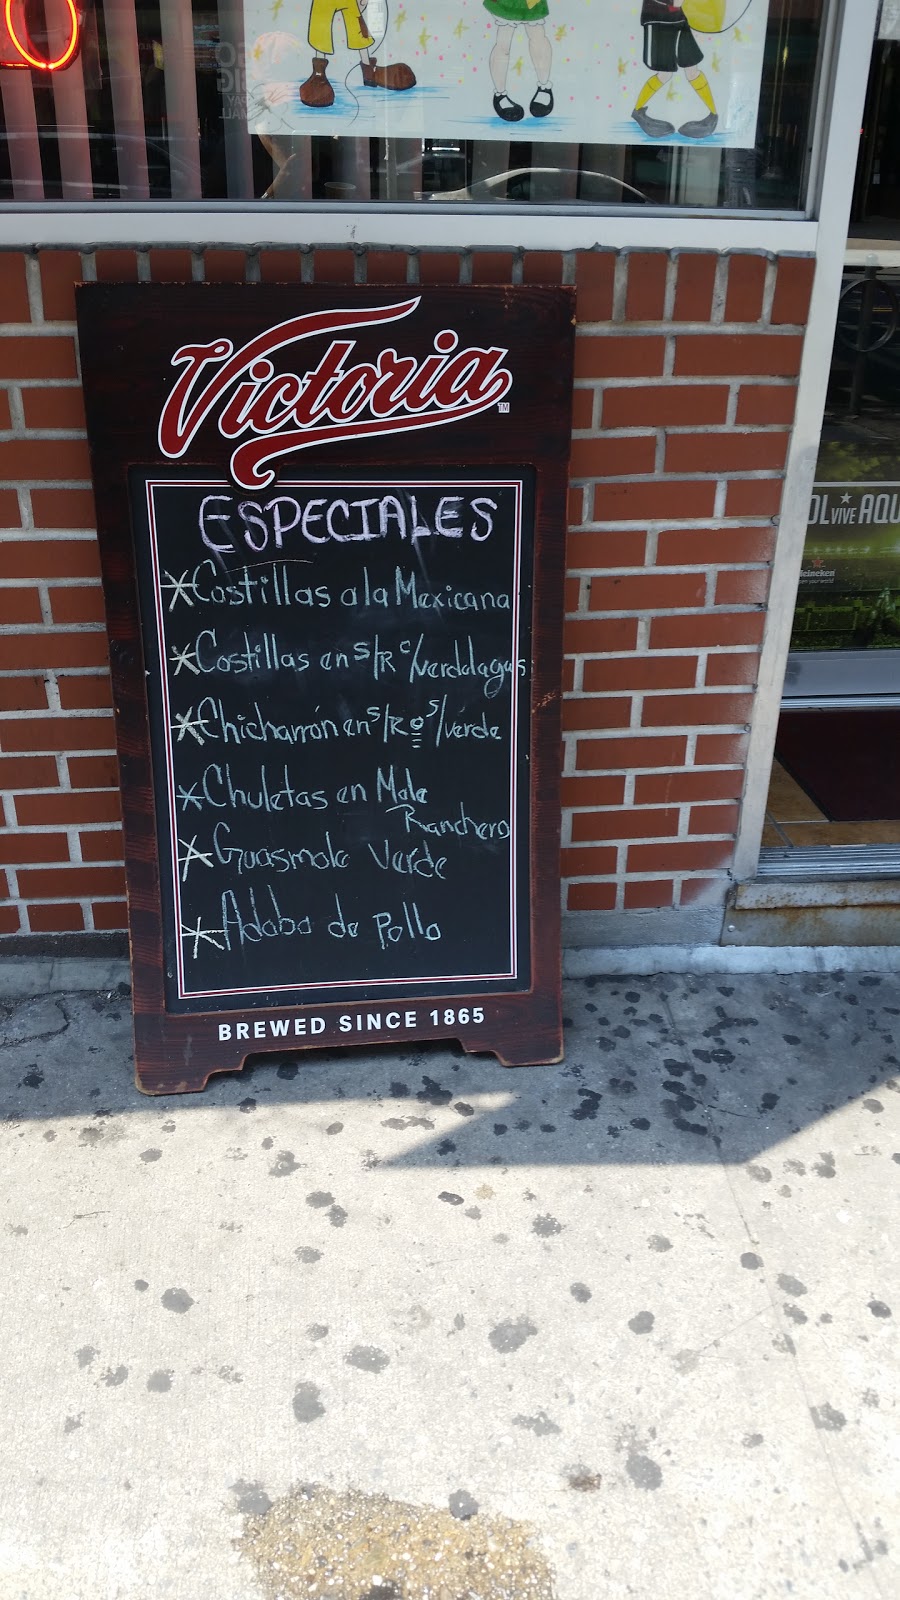 Victoria™
ESPECIALES
*Costillas a la Mexicana
*Costillas en S/R c/verdolagas
*Chicharrón en S/R o S/verde
*Chuletas en Mole
Ranchero
*Guasmole Verde
*Adobo de Pollo
BREWED SINCE 1865
VIVE AQU
Heineken